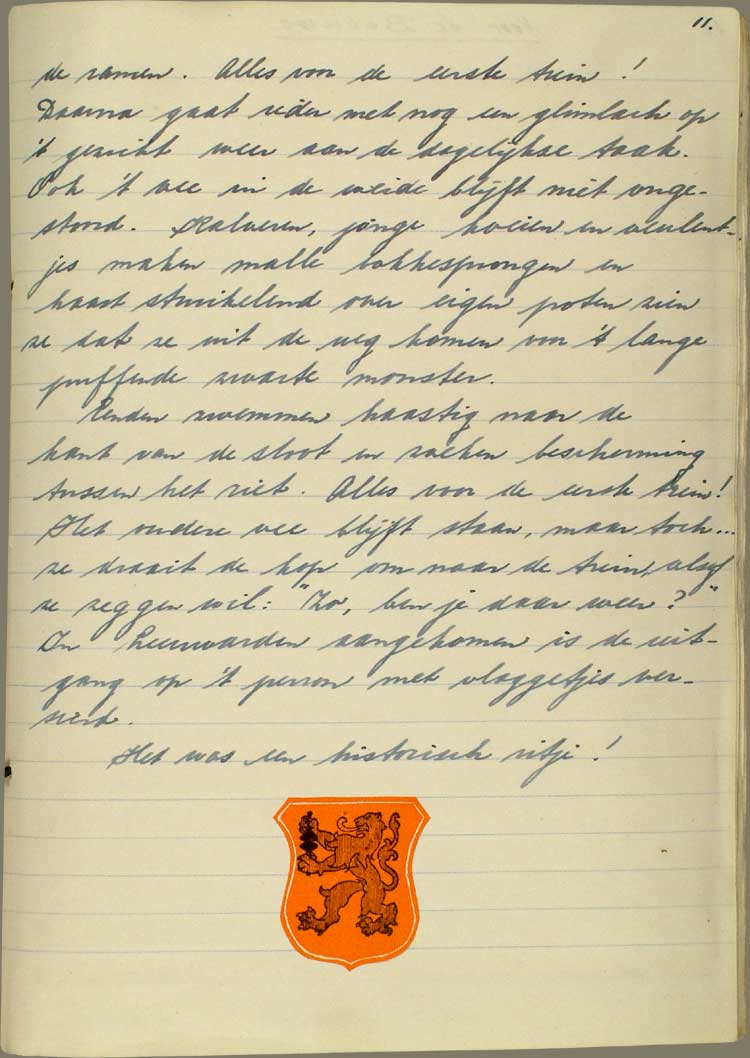 11.
de ramen. Alles voor de eerste trein!
Daarna gaat ieder met nog een glimlach op
't gezicht weer aan de dagelijkse taak.
Ook 't vee in de weide blijft niet onge-
stoord. Kalveren, jonge koeien en veulent-
jes maken malle bokkesprongen en
haast struikelend over eigen poten zien
ze dat ze uit de weg komen voor 't lange
puffende zwarte monster.
Eenden zwemmen haastig naar de
kant van de sloot en zoeken bescherming
tussen het riet. Alles voor de eerste trein!
Het oudere vee blijft staan, maar toch...
ze draait de kop om naar de trein, alsof
ze zeggen wil: "Zo, ben je daar weer?"
In Leeuwarden aangekomen is de uit-
gang op 't perron met vlaggetjes ver-
sierd.
Het was een historisch ritje!